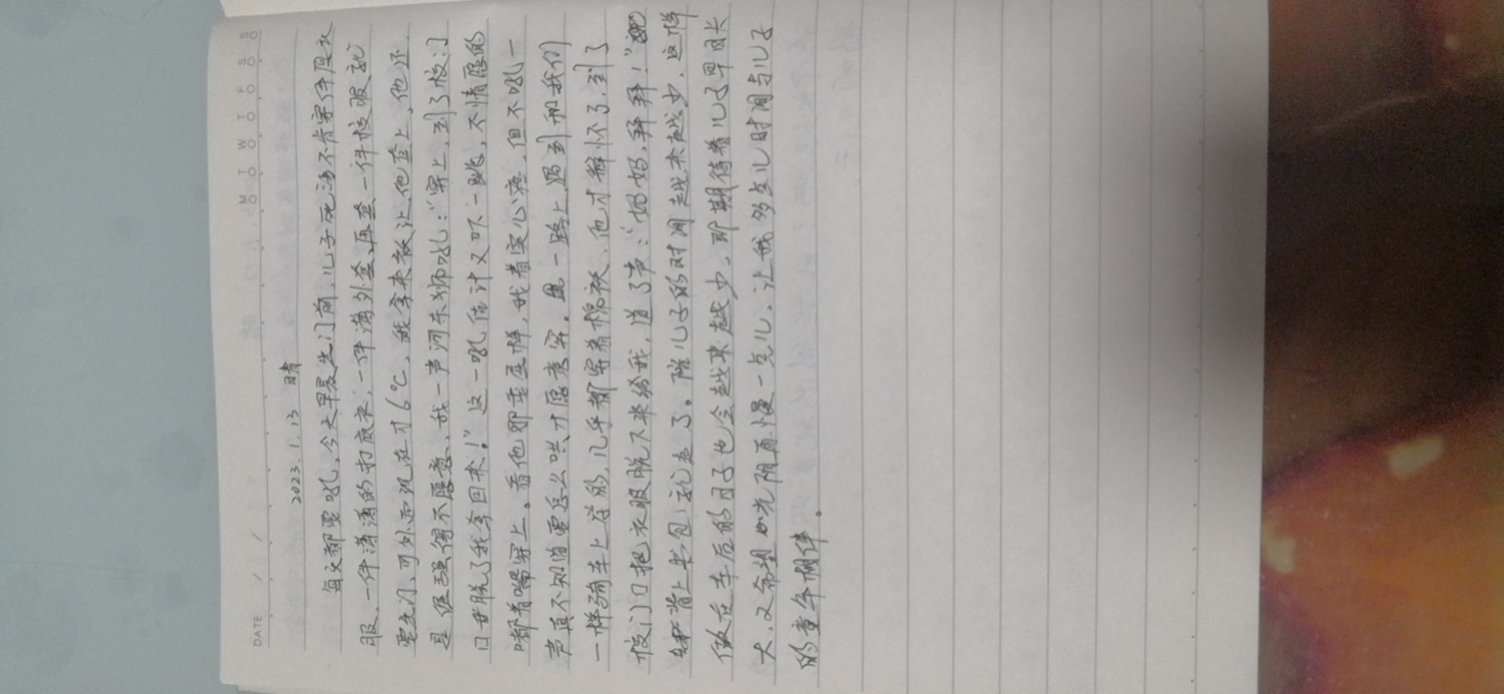 DATE / /
M T W T F S S
2023.1.13 晴
每文都要吼,今天早晨出门前,儿子死活不肯穿件厚衣
服,一件薄薄的打底衣,一件薄外套,再套一件校服就
要出门,可外面现在才6℃,我拿来袄让他套上,他还
是倔强得不愿意,我一声河东狮吼:“穿上,到了校门
口再脱了我拿回来!”这一吼估计又吓一跳,不情愿的
嘟着嘴穿上。看他那委屈样,我着实心疼,但不吼一
声真不知道要怎么哄才愿意穿。一路上遇到和我们
一样骑车上学的,几乎都穿着棉袄,他才释怀了,到了
校门口把衣服脱下来给我,道了声:“妈妈,拜拜!”
背上书包就走了。陪儿子的时间越来越少,这样
做在车后的日子也会越来越少,即期待着儿子早日长
大,又希望光阴再慢一点儿,让我多点儿时间与儿子
的童年相伴。